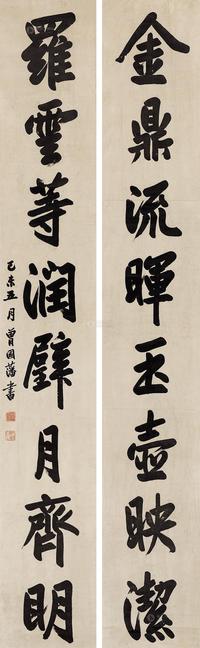 金鼎流暉玉壺映潔
羅雲等潤璧月齊明
己未五月 曾國藩書